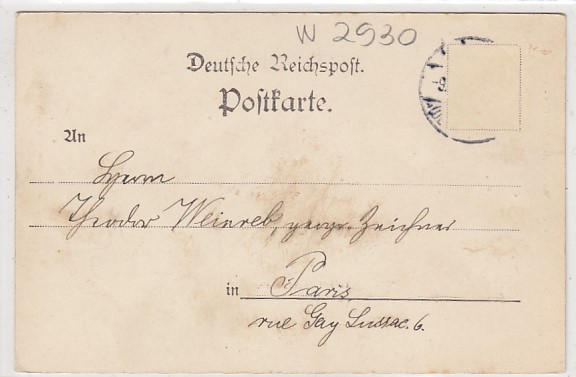 W 2930
Deutsche Reichspost.
Postkarte.
An
Herrn
Theodor Weinreb, geogr. Zeichner
in Paris
rue Gay Lussac. 6.